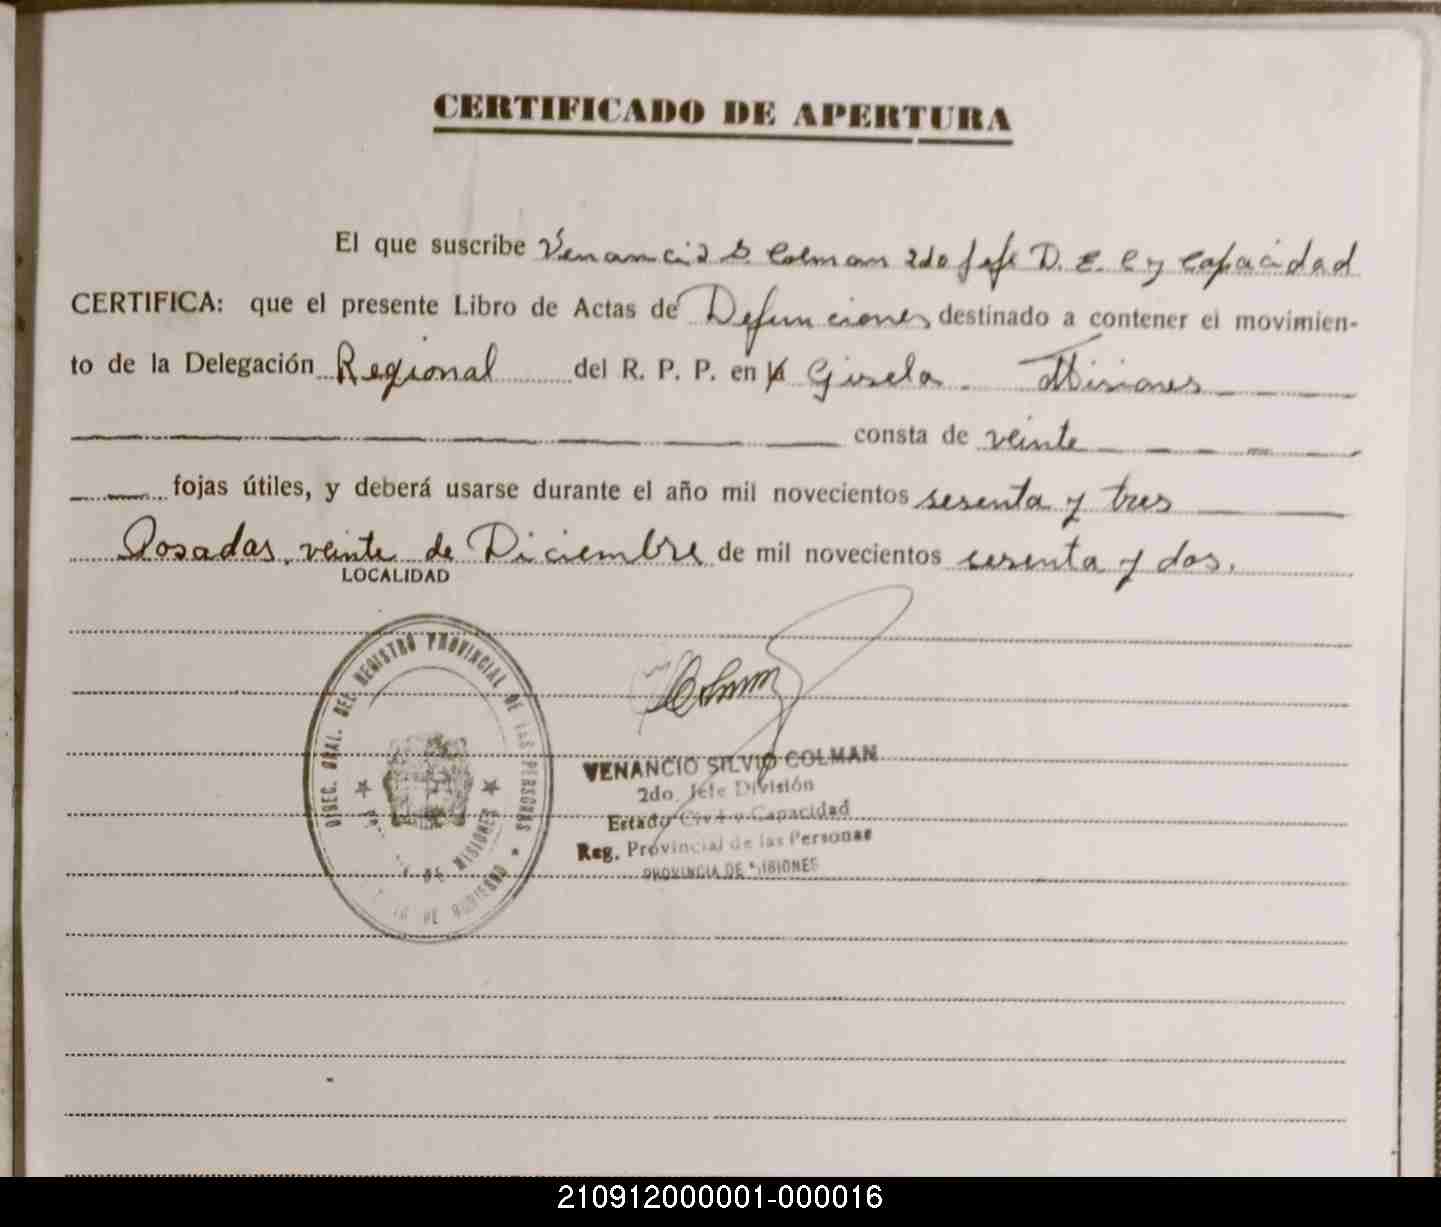 CERTIFICADO DE APERTURA
El que suscribe Venancio S. Colman 2do Jefe D. E. C y Capacidad
CERTIFICA: que el presente Libro de Actas de Defunciones destinado a contener el movimien-
to de la Delegación Regional del R. P. P. en Gisela. Misiones
consta de veinte
fojas útiles, y deberá usarse durante el año mil novecientos sesenta y tres
Posadas, veinte de Diciembre de mil novecientos sesenta y dos.
LOCALIDAD
DIREC. GRAL. DEL REGISTRO PROVINCIAL DE LAS PERSONAS
DE MISIONES
DE GOBIERNO
Colman
VENANCIO SILVIO COLMAN
2do. Jefe División
Estado Civil y Capacidad
Reg. Provincial de las Personas
PROVINCIA DE MISIONES
210912000001-000016